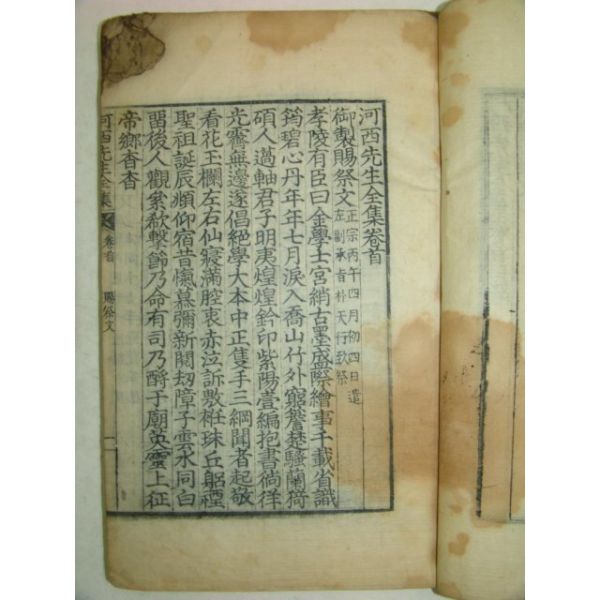 河西先生全集卷首
御製賜祭文 正宗丙午四月初四日遣左副承旨朴天行致祭
孝陵有臣曰金學士宮綃古墨盛際繪事千載省識
筠碧心丹年年七月淚入喬山竹外窮簷楚騷蘭猗
碩人薖軸君子明夷煌煌鈐印紫陽壹編抱書徜徉
光霽無邊遂倡絕學大本中正隻手三綱聞者起敬
看花玉欄左右仙寢滿腔衷赤泣訴敷衽珠丘躬禋
聖祖誕辰頫仰宿昔愾慕彌新閱劫障子雲水同白
留後人觀纍欷擊節乃命有司乃酹于廟英靈上征
帝鄉杳杳
河西先生全集 卷首 賜祭文 一